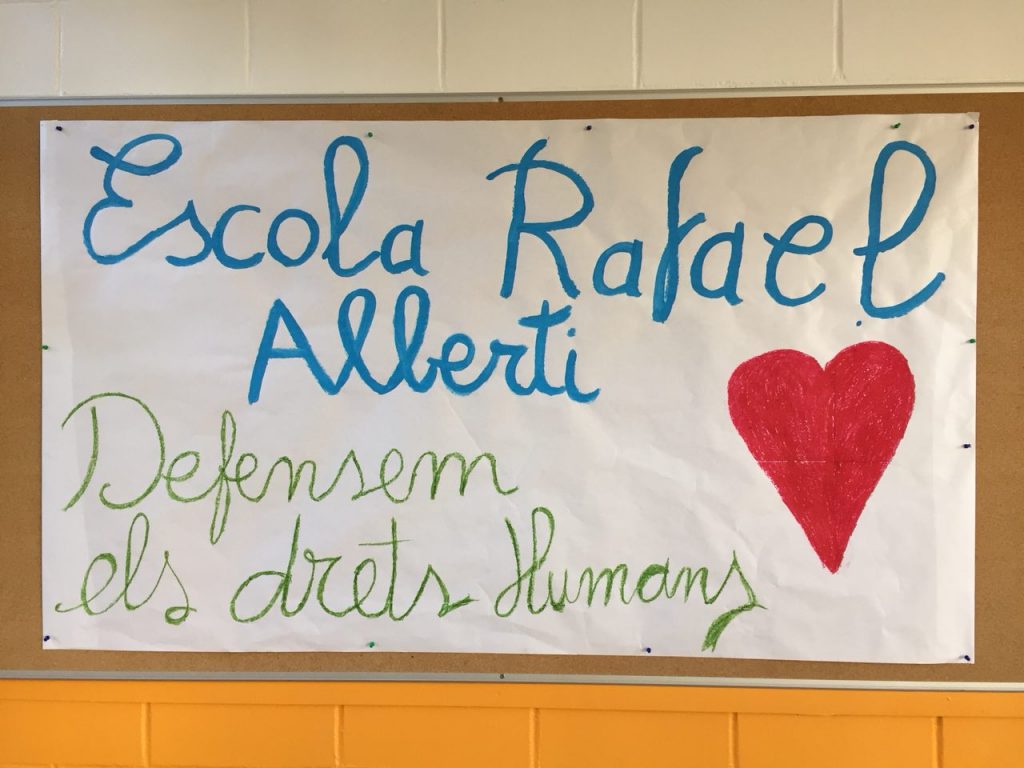 Escola Rafael
Alberti
Defensem
els drets Humans